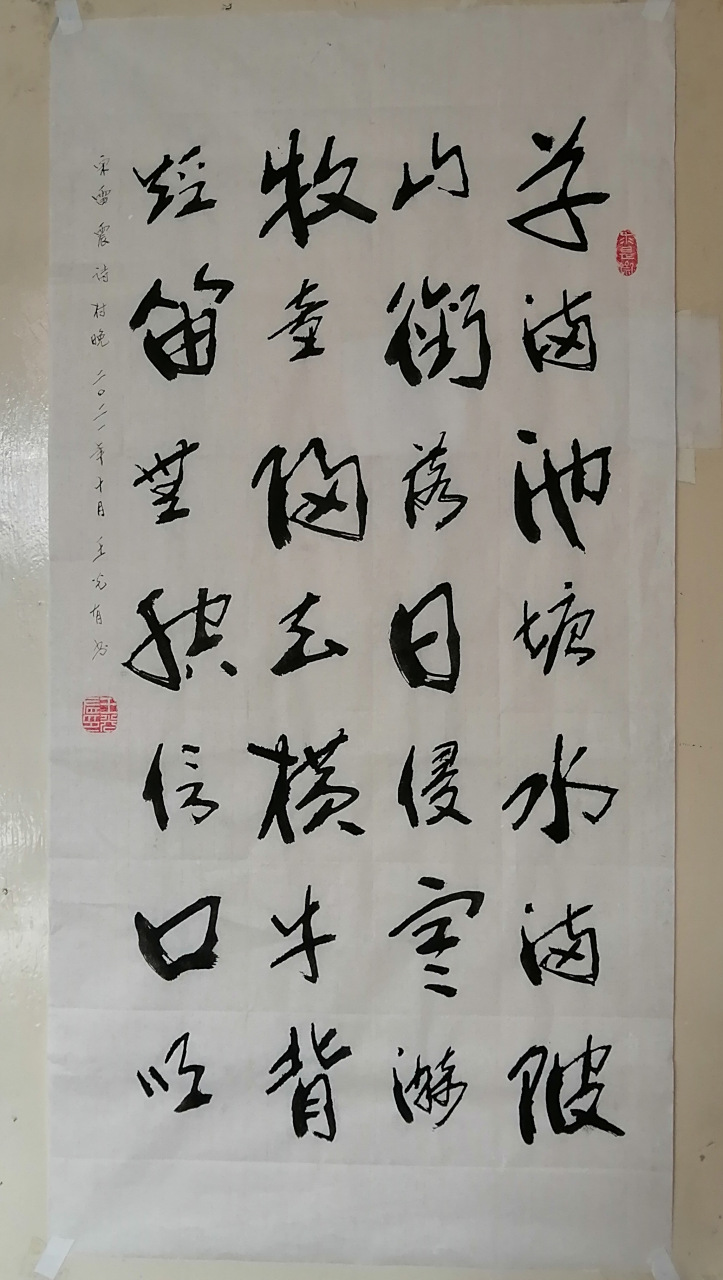 草满池塘水满陂
山衔落日侵寒漪
牧童归去横牛背
短笛無腔信口吹
宋雷震诗村晚 二〇二一年十月 王光有书